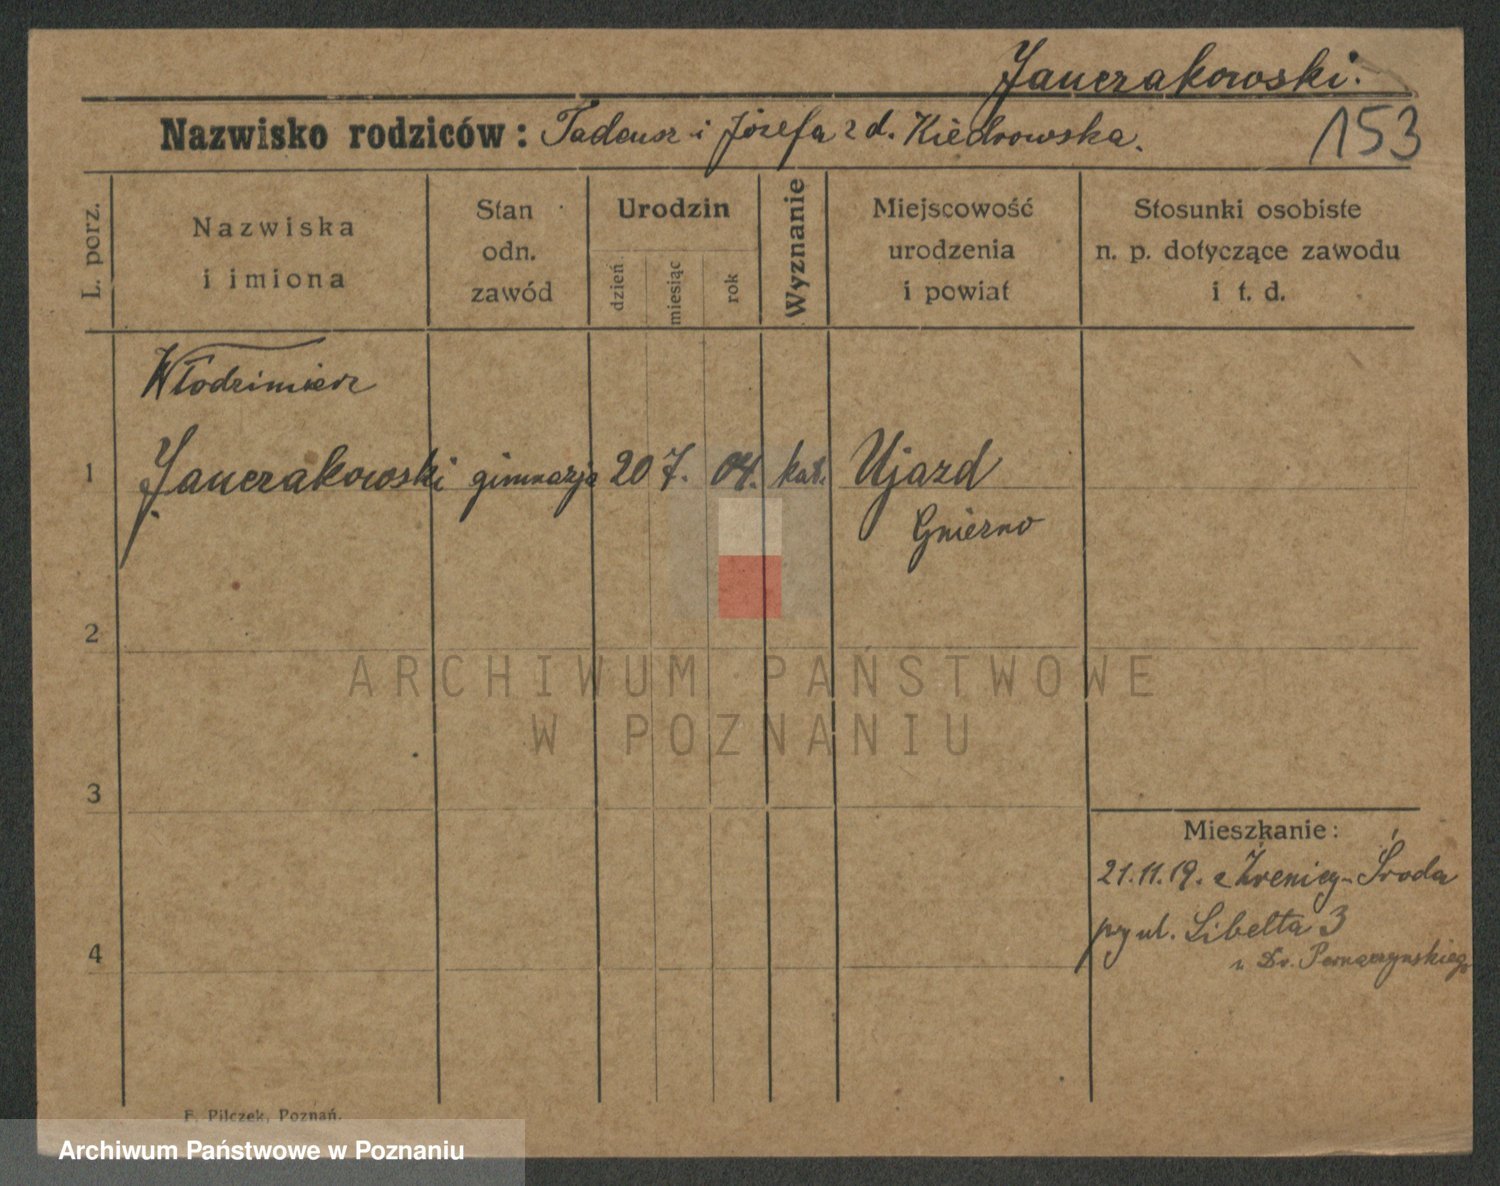 Janczakowski.
Nazwisko rodziców: Tadeusz i Józefa z d. Kiedrowska.
153
L. porz.
Nazwiska
i imiona
Stan
odn.
zawód
Urodzin
dzień
miesiąc
rok
Wyznanie
Miejscowość
urodzenia
i powiat
Stosunki osobiste
n. p. dotyczące zawodu
i t. d.
Włodzimierz
1 Janczakowski gimnazja 20 7. 04. kat. Ujazd
Gniezno
2
ARCHIWUM PAŃSTWOWE
W POZNANIU
3
Mieszkanie:
21.11.19. z Źrenicy-Środa
przy ul. Libelta 3
u Dr.
4
F. Pilczek, Poznań.
Archiwum Państwowe w Poznaniu